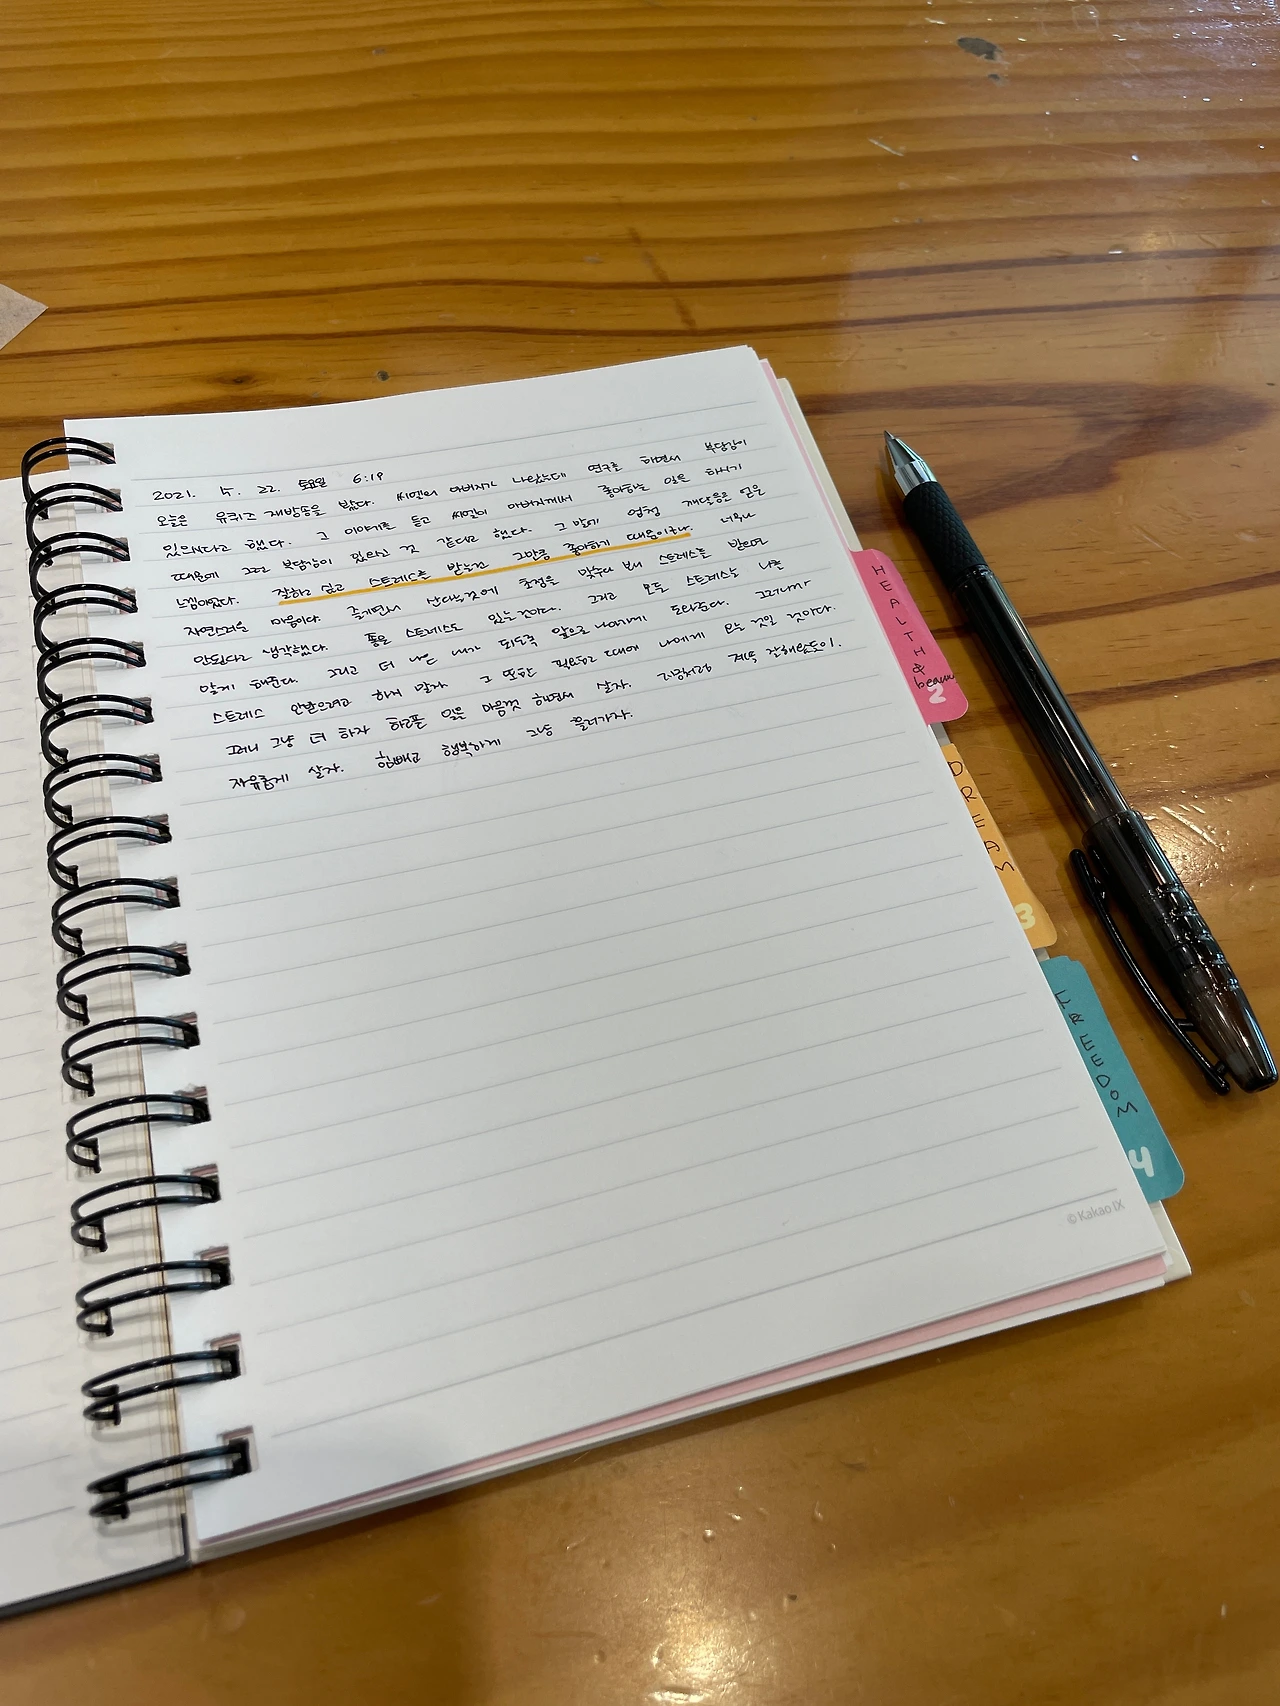 2021. 5. 22. 토요일 6:19
오늘은 유퀴즈 재방송을 봤다. 씨엘의 아버지가 나왔는데 연구를 하면서 부담감이
있으시다고 했다. 그 이야기를 듣고 씨엘이 아버지께서 좋아하는 일을 하시기
때문에 그런 부담감이 있으신 것 같다고 했다. 그 말에 엄청 깨달음을 얻은
느낌이었다. 잘하고 싶고 스트레스를 받는건 그만큼 좋아하기 때문이구나. 너무나
자연스러운 마음이다. 즐기면서 산다는것에 초점을 맞추다 보니 스트레스를 받으면
안된다고 생각했다. 좋은 스트레스도 있는것이다. 그리고 모든 스트레스는 나를
알게 해준다. 그리고 더 나은 내가 되도록 앞으로 나아가게 도와준다. 그러니까
스트레스 안받으려고 하지 말자. 그 또한 필요하고 때에 나에게 오는 것일 것이다.
그러니 그냥 더 하자 하고픈 일을 마음껏 하면서 살자. 지금처럼 계속 잘해왔듯이.
자유롭게 살자. 힘빼고 행복하게 그냥 흘러가자.
HEALTH
& beauty
2
DREAM
3
FREEDOM
4
© Kakao IX